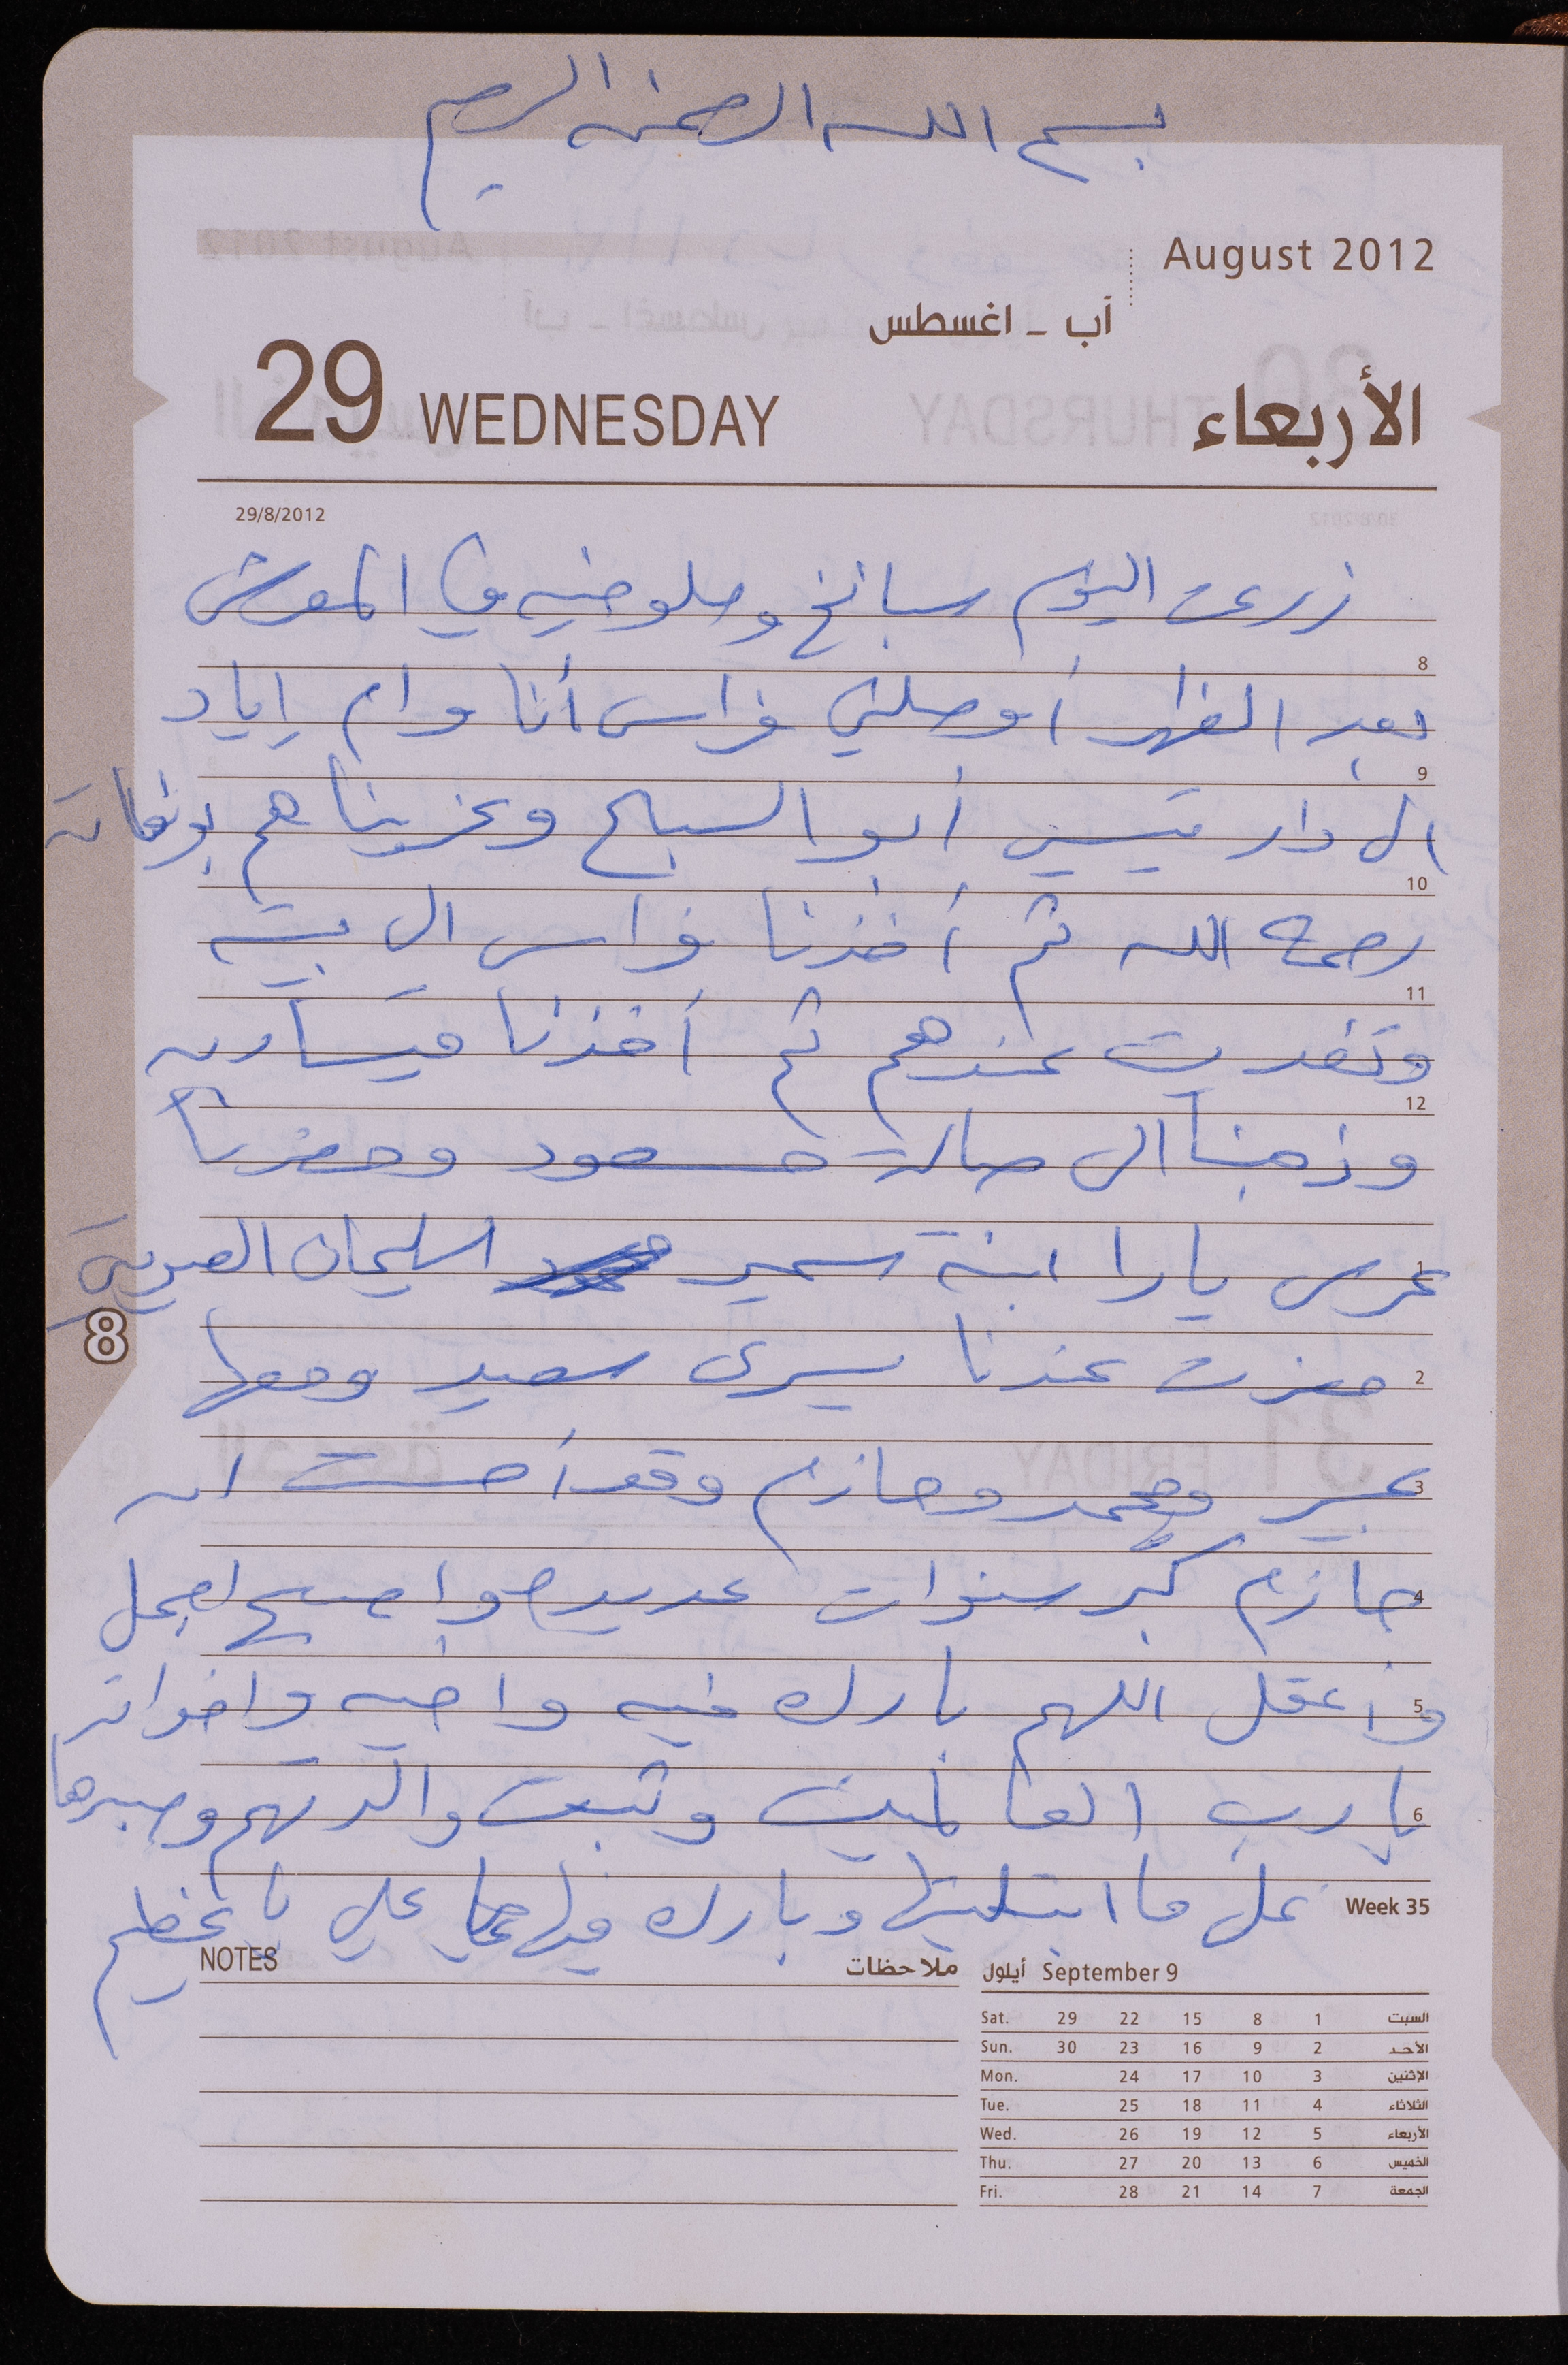 بسم الله الرحمن الرحيم
August 2012
آب - اغسطس
29 WEDNESDAY الأربعاء
29/8/2012
زرعت اليوم سبانخ وملوخيه في المعرش
8
بعد الظهر أوصلني فراس أنا وام إياد
9
الى دار تيسير أبو السباع وعزيناهم بوفاته
10
رحمه الله ثم أخذنا فراس الى بيته
11
وتغديت عندهم ثم أخذنا ميساره
12
وذهبنا الى صالة مسعود وحضرنا
1
عرس يارا ابنة سمير اسليمان
2
حضرت عندنا يسرى سعيد ومعها
3
عبير ومحمد وحازم وقد أحسست ان
4
حازم كبر سنوات عديده واصبح اجمل
5
وأعقل اللهم بارك فيه واخيه واخواته
6
يارب العالمين وثبت والدتهم وصبرها
على ما ابتليتها وبارك فيها يا علي يا عظيم
Week 35
8
NOTES ملاحظات
أيلول September 9
Sat. 29 22 15 8 1 السبت
Sun. 30 23 16 9 2 الأحد
Mon. 24 17 10 3 الإثنين
Tue. 25 18 11 4 الثلاثاء
Wed. 26 19 12 5 الأربعاء
Thu. 27 20 13 6 الخميس
Fri. 28 21 14 7 الجمعة